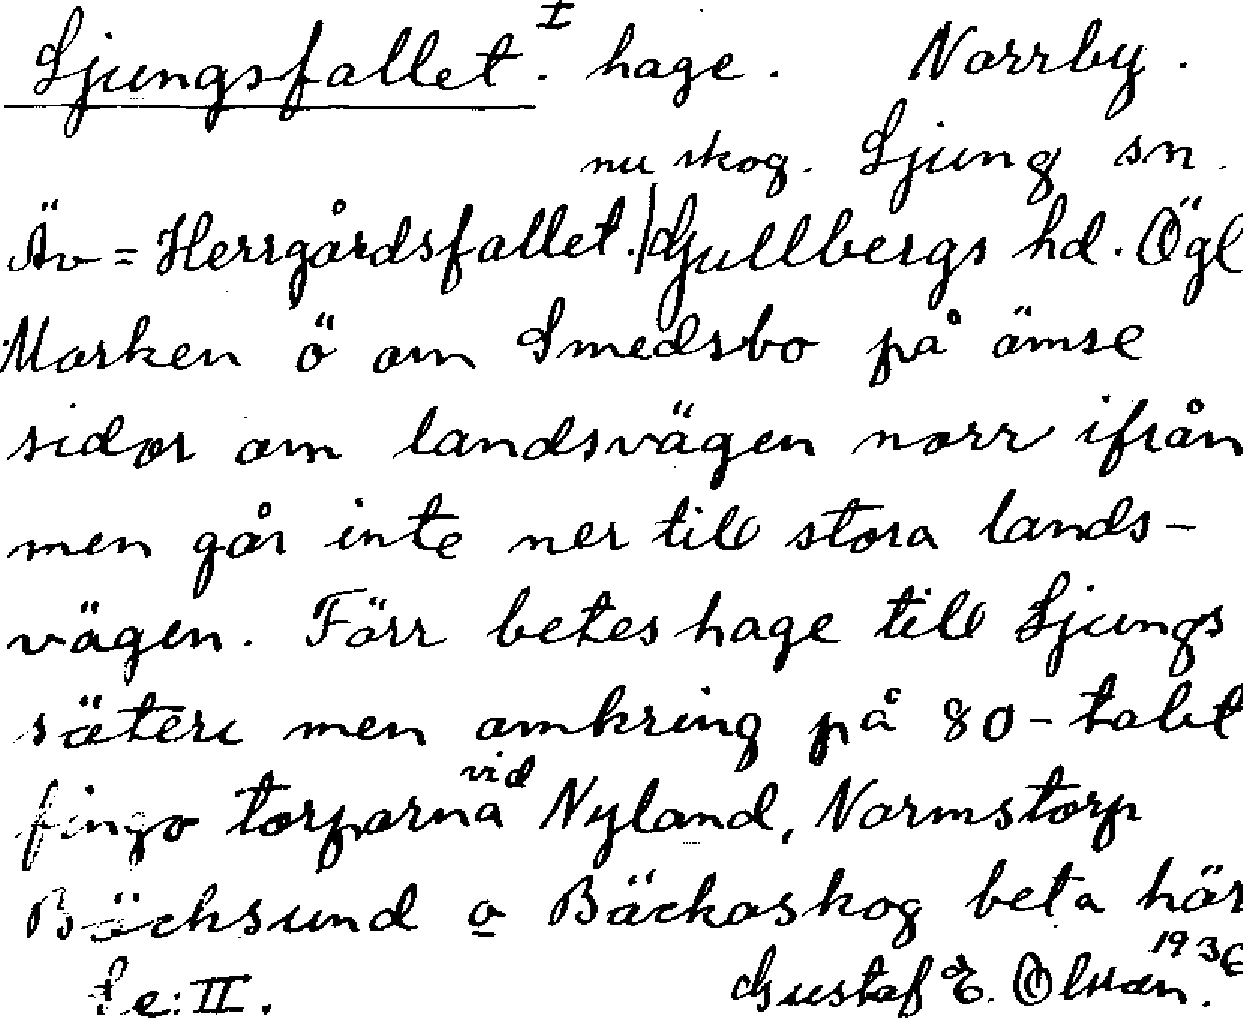 Ljungsfallet. I hage. Norrby.
nu skog. Ljung sn.
Äv = Herrgårdsfallet. Gullbergs hd. Ögl
Marken ö om Smedsbo på ömse
sidor om landsvägen norr ifrån
men går inte ner till stora lands-
vägen. Förr beteshage till Ljungs
säteri men omkring på 80-talet
fingo torparna vid Nyland, Normstorp
Bäcksund o Bäckaskog beta här
Se: II. Gustaf E. Olsson. 1936